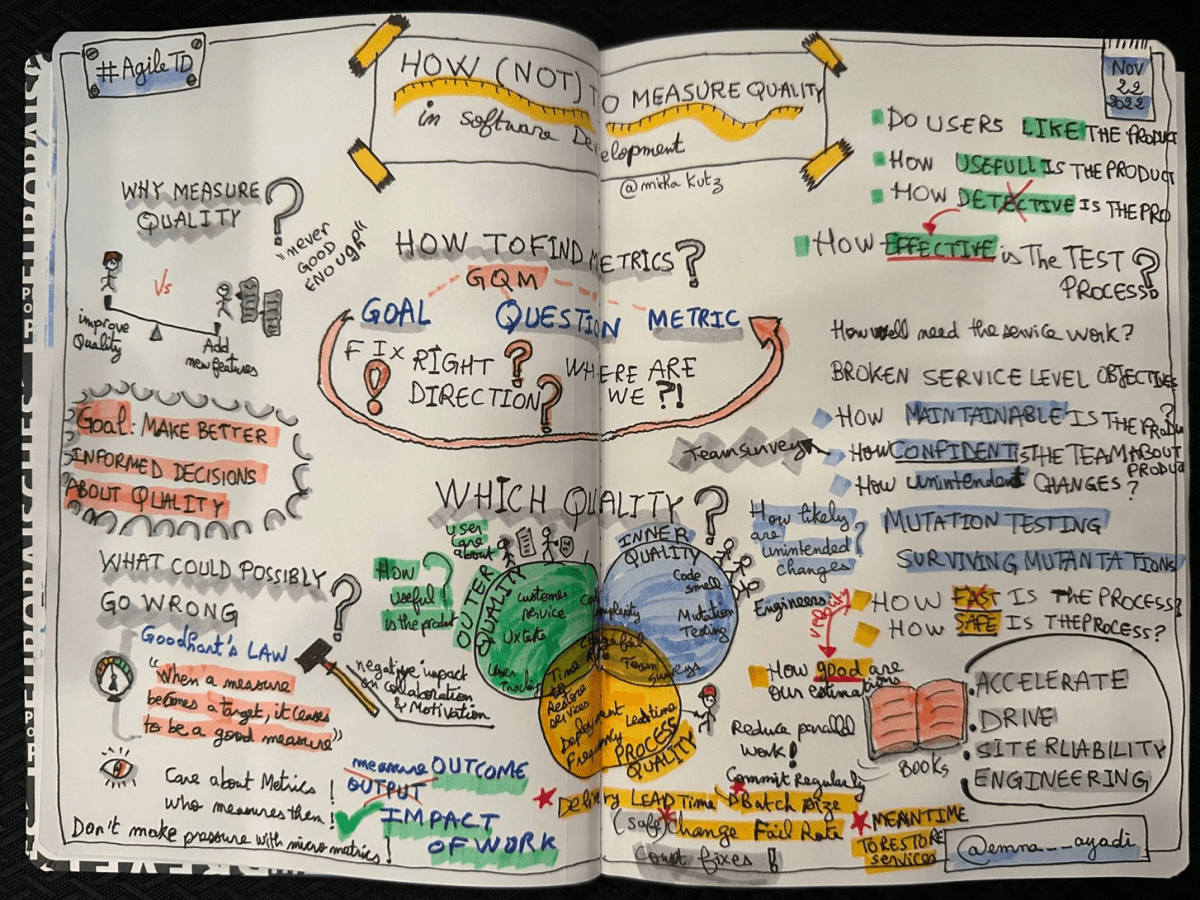 #AgileTD
HOW (NOT) TO MEASURE QUALITY
in software Development
@mirka Kutz
Nov
22
2022
WHY MEASURE
QUALITY ?
"never
GOOD
ENOUGH"
Vs
improve
Quality
Add
new features
Goal: MAKE BETTER
INFORMED DECISIONS
ABOUT QUALITY
WHAT COULD POSSIBLY
GO WRONG ?
Goodhart's LAW
"When a measure
becomes a target, it ceases
to be a good measure"
negative impact
on collaboration
& Motivation
Care about Metrics
who measures them !
Don't make pressure with micro metrics !
measure OUTCOME
OUTPUT
IMPACT
OF WORK
HOW TO FIND METRICS ?
GQM
GOAL QUESTION METRIC
FIX RIGHT ?
! DIRECTION ?
WHERE ARE
WE ?!
WHICH QUALITY ?
User
care
about
How ?
useful
is the product
OUTER
QUALITY
customer
service
UX tests
User
Tracking
INNER
QUALITY
Code
smell
Complexity
Mutation
Testing
Change fail
Rate
Team
Surveys
Time
to
Restore
services
Deployment
Frequency
Lead time
PROCESS
QUALITY
How likely
are
unintended ?
changes
Engineers
DO USERS LIKE THE PRODUCT
HOW USEFULL IS THE PRODUCT
HOW DETECTIVE IS THE PRO
HOW EFFECTIVE is The TEST
PROCESS ?
How well need the service work?
BROKEN SERVICE LEVEL OBJECTIVES
HOW MAINTAINABLE IS THE PRODU ?
Team survey
HOW CONFIDENT is THE TEAM ABOUT
PRODUC
How unintendent CHANGES ?
MUTATION TESTING
SURVIVING MUTANTATIONS
HOW FAST IS THE PROCESS?
HOW SAFE IS THE PROCESS?
How good are
our estimations
Reduce parallel
work !
BOOKS
ACCELERATE
DRIVE
SITE RLIABILITY
ENGINEERING
Commit Regularly
Delivery LEAD Time Batch size
(safe) Change Fail Rate
Count fixes !
MEANTIME
TO RESTORE
services
@emna__ayadi